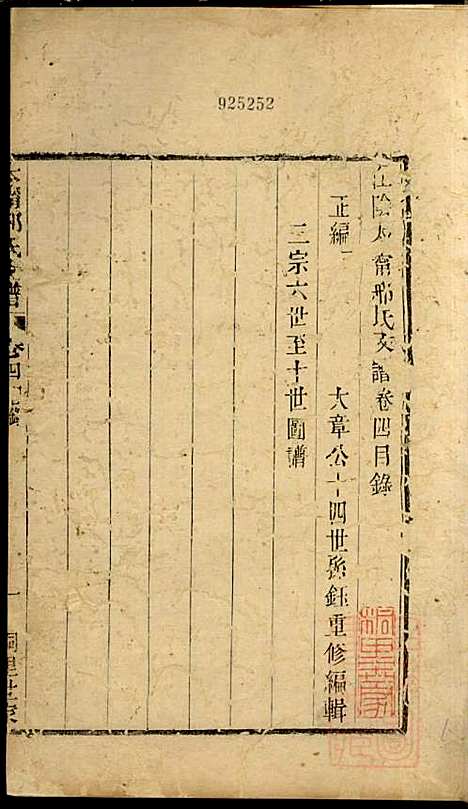 925252
江陰太甯邢氏支譜卷四目錄
正編一
大章公十四世孫鈺重修編輯
三宗六世至十世圖譜
太甯邢氏支譜
卷四目錄
一